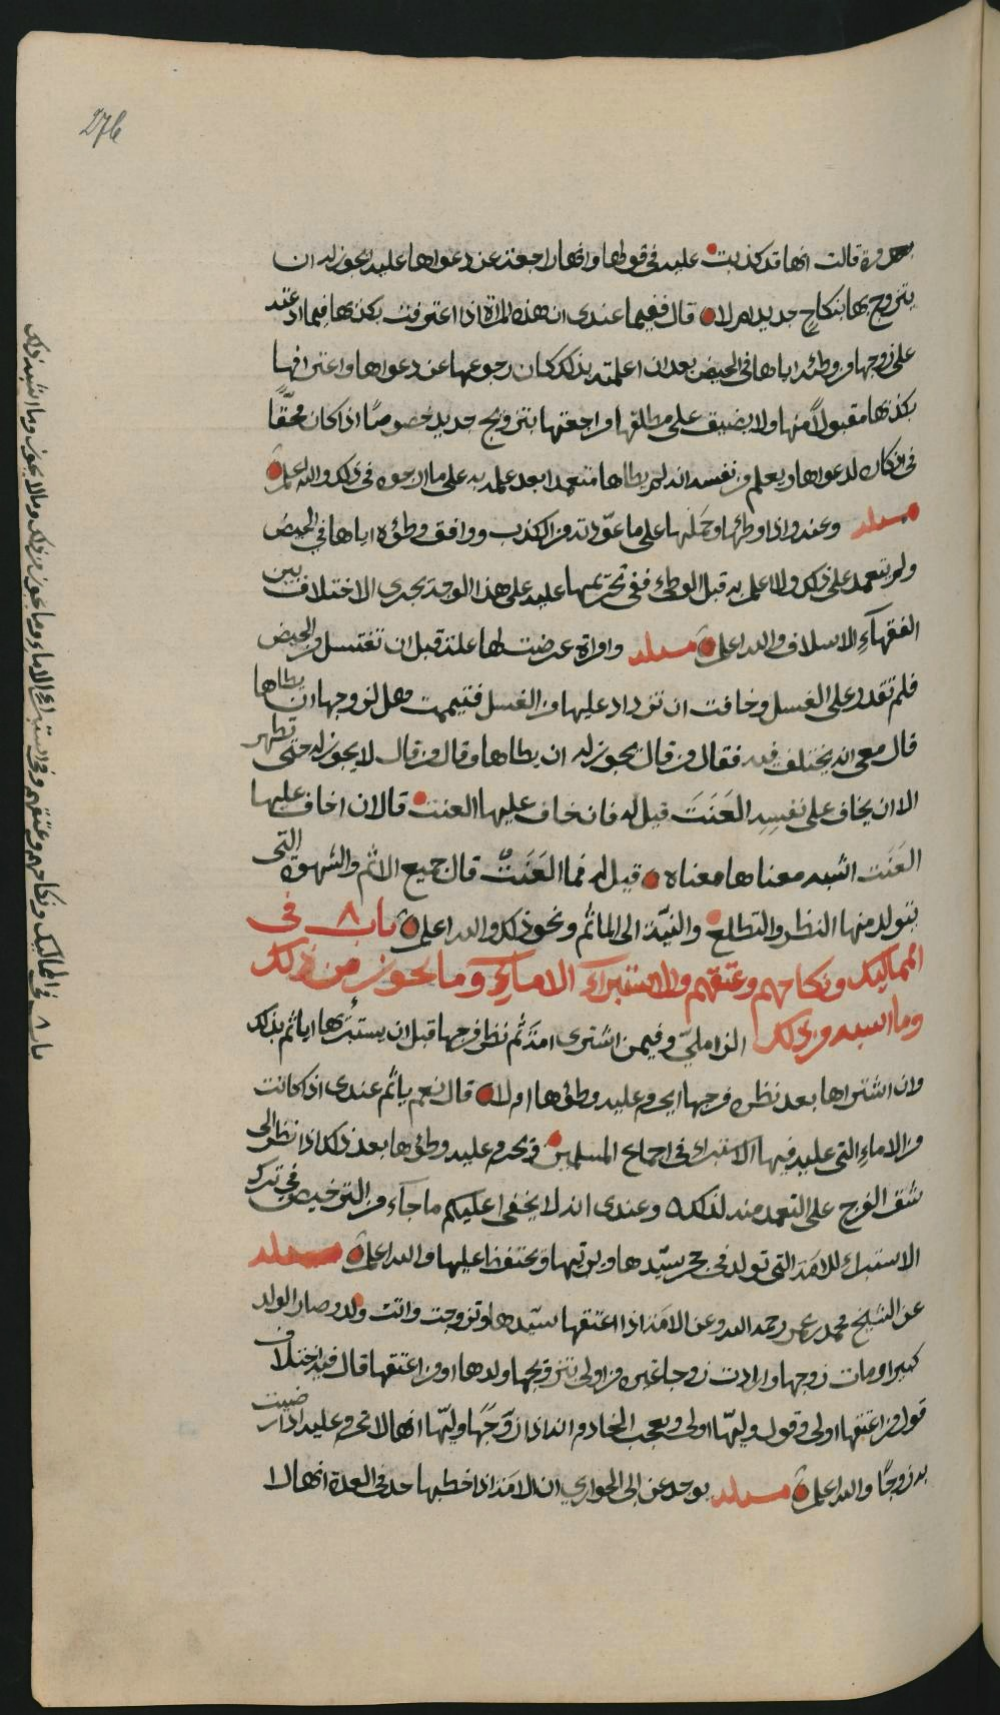 276
قالت انها قد كذبت عليه في قولها وانها راجعة عن دعواها عليه يجوز له ان
يتزوج بها بنكاح جديد ام لا قال ففيما عندي ان هذه المراة اذا اعترفت بكذبها فيما ادعته
على زوجها من وطئه اياها في الحيض بعد ان اعلمته بذلك كان رجوعها عن دعواها واعترافها
بكذبها مقبولاً منها ولا يضيق على مطلقها مراجعتها بتزويج جديد خصوصًا اذا كان محقًّا
في انكاره لدعواها ويعلم من نفسه انه لم يطاها متعمدا بعد علمه به على ما ارجوه في ذلك والله اعلم
مسئلة وعنه واذا وطئها وحملها على ما عوّدته من الكذب ووافق وطؤه اياها في الحيض
ولم يتعمد على ذلك ولا اعلم به قبل الوطئ ففي تحريمها عليه على هذا الوجه يجري الاختلاف بين
الفقهآء الاسلاف والله اعلم مسئلة وامراة عرضت لها علة قبل ان تغتسل من الحيض
فلم تقدر على الغسل وخافت ان تزداد عليها من الغسل فتيممت هل لزوجها ان يطاها
قال معي انه يختلف فيه فقال من قال يجوز له ان يطاها وقال من قال لا يجوز له حتى تطهر
الا ان يخاف على نفسِه العَنَتَ قيل له فان خاف عليها العنت قال ان خاف عليها
العَنَت اشبه معناها معناه قيل له فما العَنَتُ قال جميع الاثم والشهوة التي
يتولد منها النظر والتطلع والنيّة الى الماثم ونحو ذلك والله اعلم باب ٨ في
المماليك ونكاحهم وعتقهم والاستبراء الاماء وما يجوز من ذلك
وما اشبه ذلك الزاملي وفيمن اشترى امَة ثم نظر فرجها قبل ان يستبرئها اياثم بذلك
وان اشتراها بعد نظره فرجها ايحرم عليه وطؤها ام لا قال نعم ياثم عندي اذا كانت
من الاماء التي عليه فيها الاستبراء في اجماع المسلمين ويحرم عليه وطؤها بعد ذلك اذا نظر الى
شق الفرج على التعمد منه لذلك وعندي انه لا يخفى عليكم ما جآء من الترخيص في ترك
الاستبراء للامة التي تولد في حجر سيّدها ويربيها ويحتفظ عليها والله اعلم مسئلة
عن الشيخ محمد بن عمر رحمه الله وعن الامة اذا اعتقها سيّدها وتزوجت واتت ولد وصار الولد
كبيرا ومات زوجها وارادت زوجا غيره من اولى بتزويجها ولدها او من اعتقها قال فيه اختلاف
قول من اعتقها اولى وقول وليّها اولى ويعجب الخادم انه اذا زوّجها وليّها انها لا تحرم عليه اذا رضيت
به زوجًا والله اعلم مسئلة يوجد عن ابي الحواري ان الامة اذا خطبها احد في العدة انها لا
باب ٨ في المماليك ونكاحهم وعتقهم وفي استبراء الاماء وما يجوز من ذلك وما لا يجوز وما اشبه ذلك